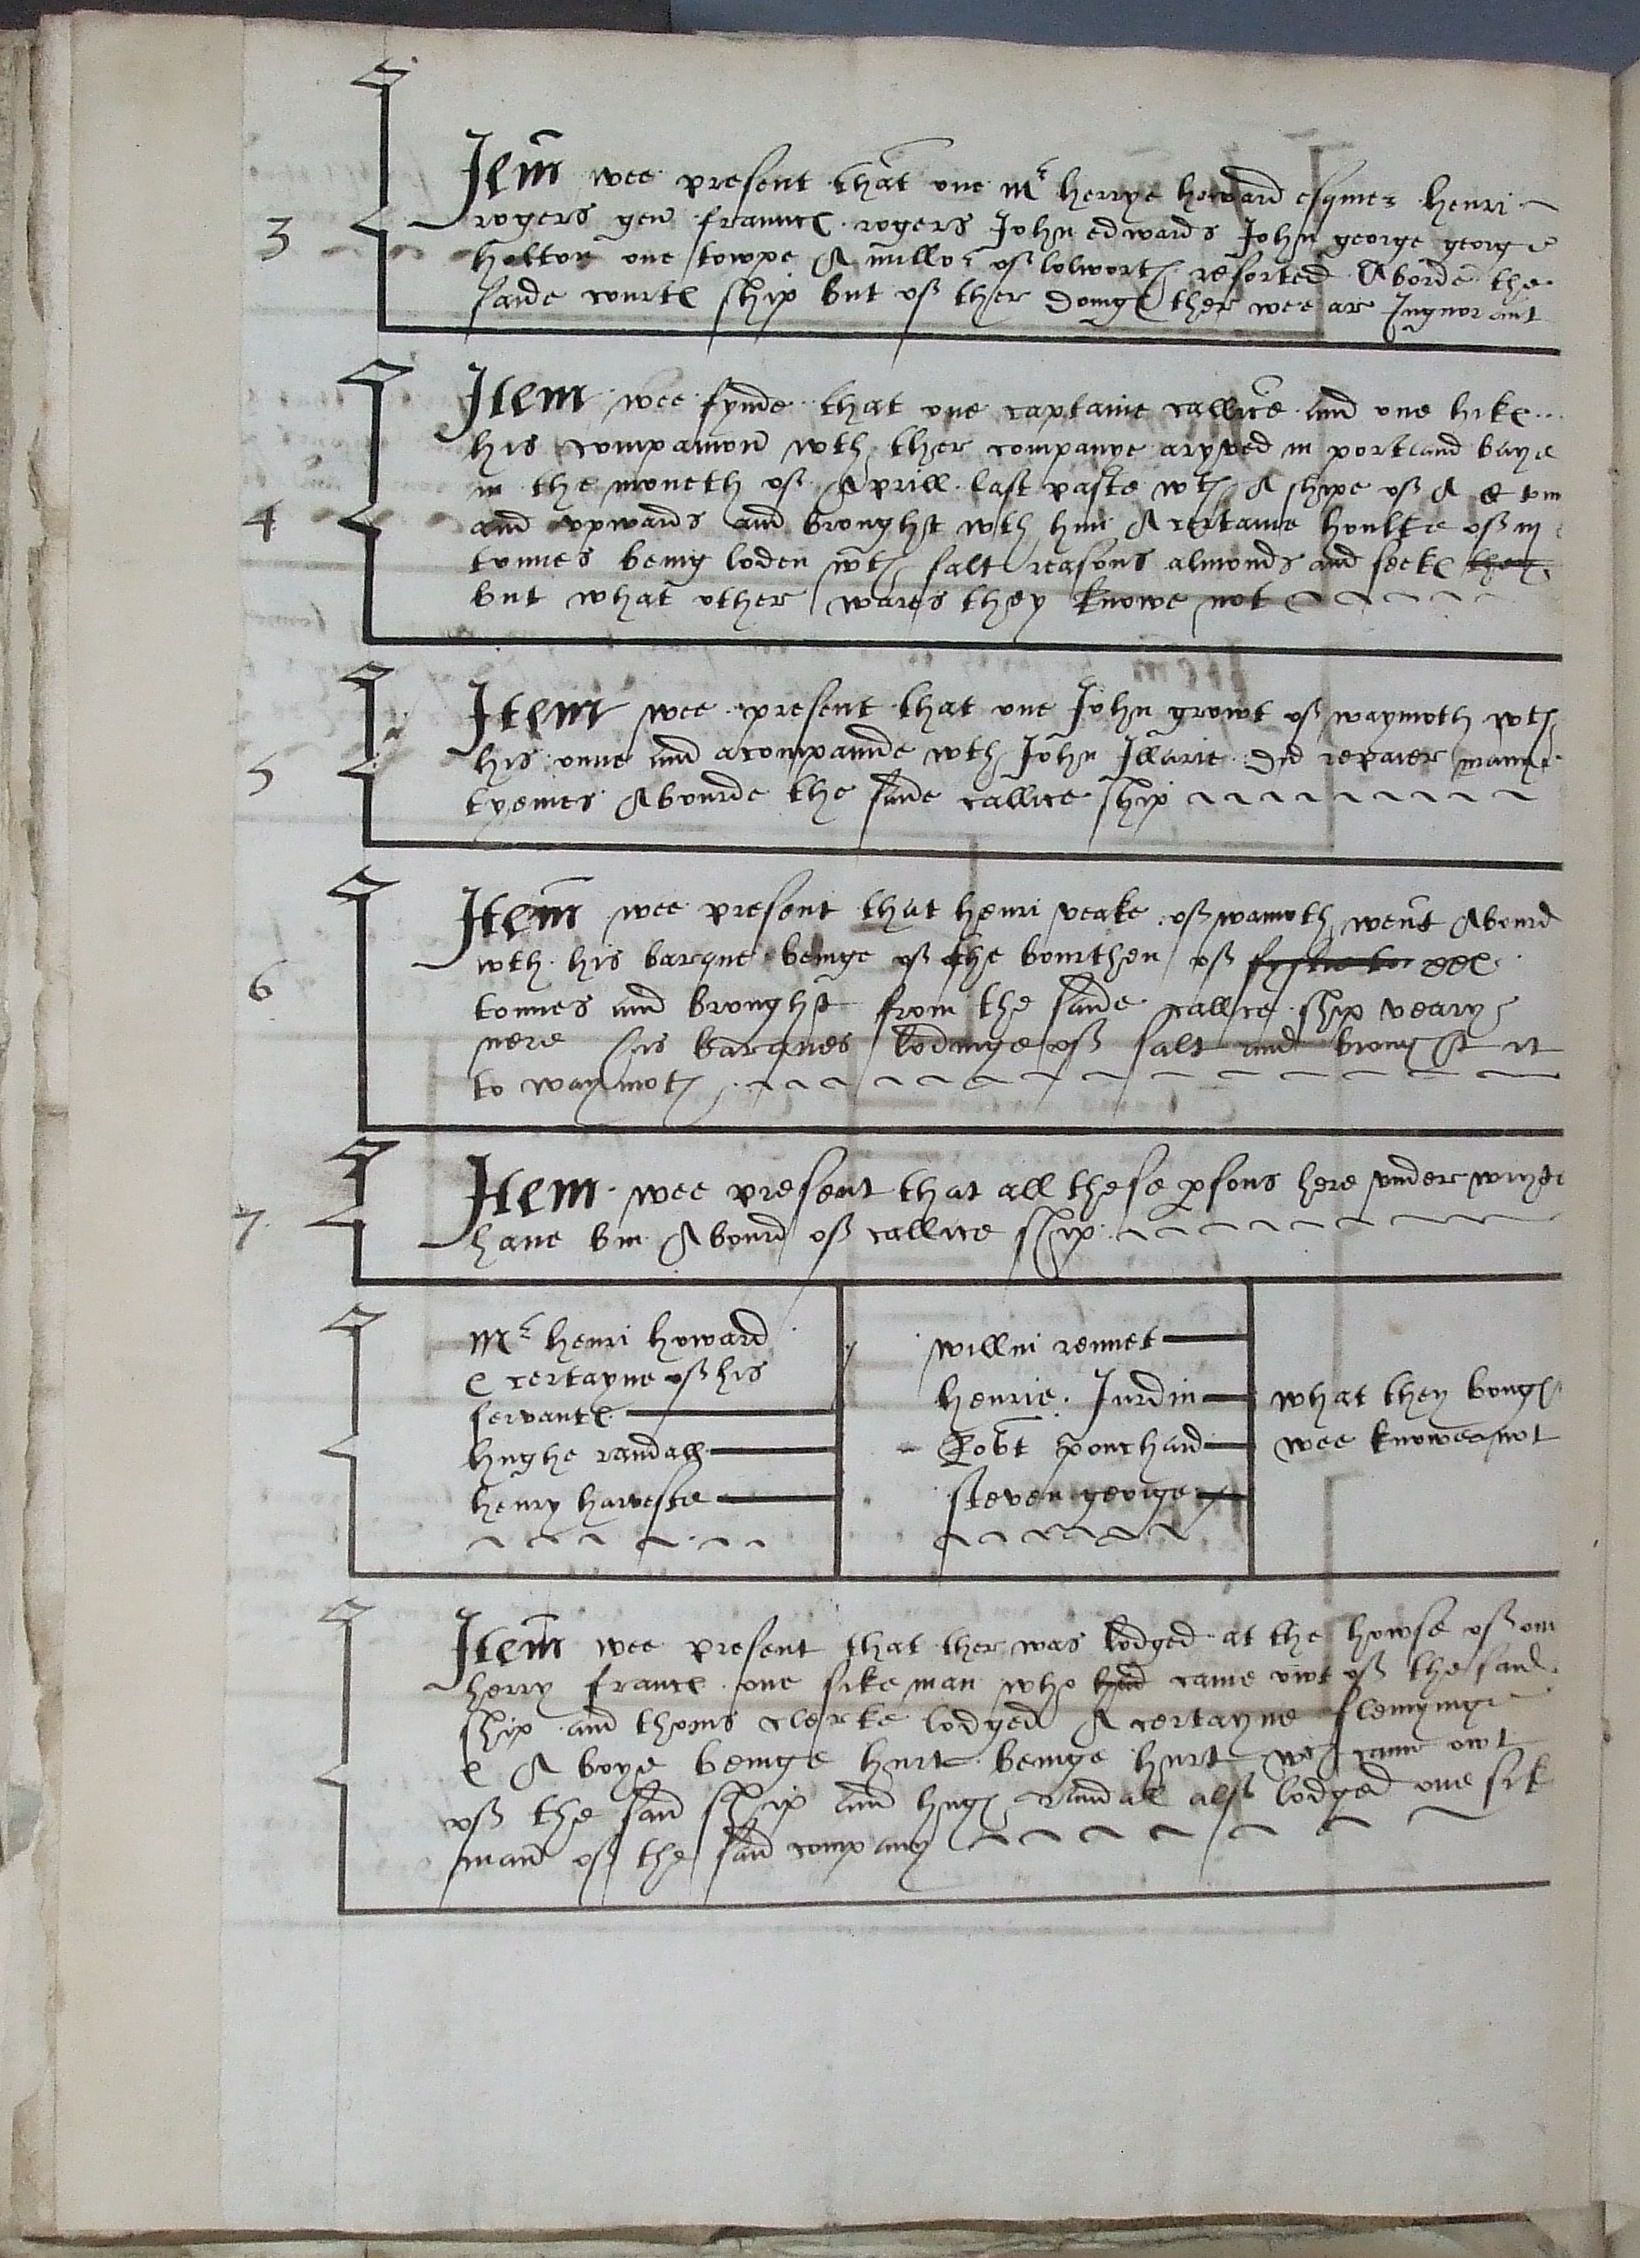 Item wee present that one Mr herrye howard esquier henri
3
rogers gen francis rogers John edwards John george george
holton one towpe A millor of lolworth resorted Aborde the
saide courtes ship but of ther doinges ther wee ar Ingnorant
Item wee fynde that one captaine callice and one
his companion wth ther companye aryved in portland baye
in the moneth of Aprill last paste wth A shipe of A
4
and upwards and broughst wth him A certaine houlke of
tonnes being loden wth salt reasons almonds and
but what other wares they knowe not
Item wee present that one John growt of waymoth wth
5
his onne and acompainde wth John Illarie did repaier manye
tyemes Abourde the saide callice ship
Item wee present that henri veake of wamoth went Abourd
wth his barque beinge of the bourthen of
6
tonnes and broughst from the saide callice ship veary
nere his barques lodinge of salt and broughst it
to waymoth
Item wee present that all these psons here under wryte
7
have bin Abourd of callice ship
Mr henri howard
& certayne of his
servantes
hughe randall
henry harveste
willm rennet
henrie Jurdin
Robt pouchard
steven george
what they
wee knowe not
Item wee present that ther was lodged at the howse of
herry frances one sike man who had came owt of the said
ship and thoms clerke lodged A certayne flemynge
& A boye beinge hurt beinge hurt wch came owt
of the said ship and hugh randall also lodged one sik
man of the said company